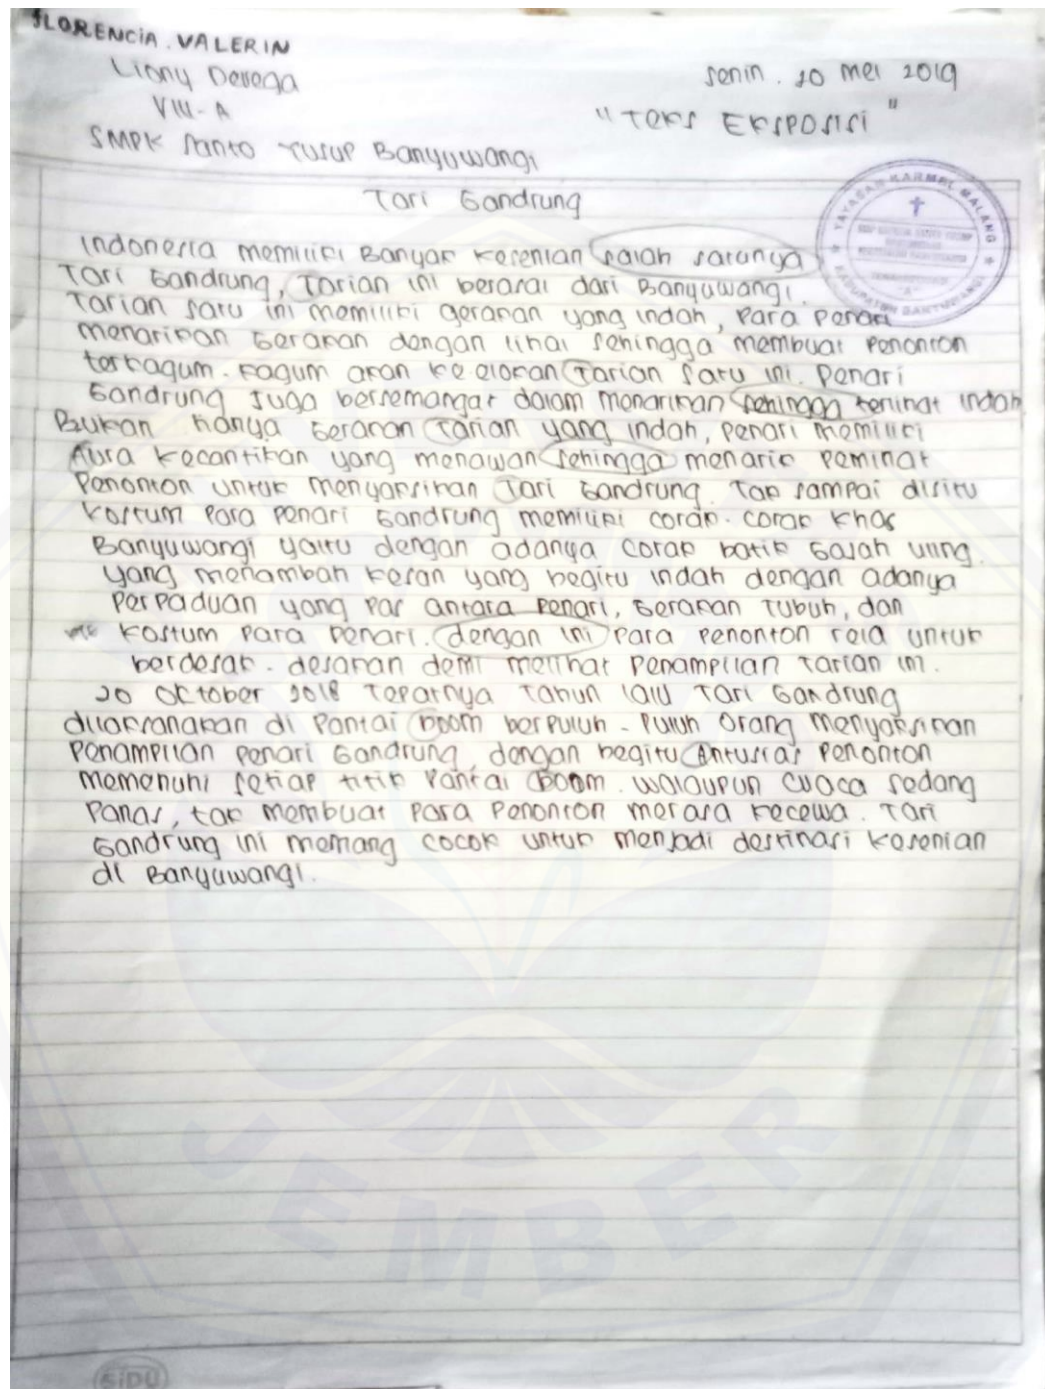 FLORENCIA. VALERIN
Liony Derega
VIII-A
SMPK Santo Yusup Banyuwangi
Senin. 20 Mei 2019
"Teks Eksposisi"
Tari Gandrung
Indonesia memiliki Banyak Kesenian salah satunya
Tari Gandrung, Tarian ini berasal dari Banyuwangi.
Tarian satu ini memiliki gerakan yang indah, Para Penari
menarikan Gerakan dengan lihai sehingga membuat Penonton
terkagum-kagum akan keelokan Tarian satu ini. Penari
Gandrung Juga bersemangat dalam menarikan sehingga terlihat indah
Bukan hanya Gerakan Tarian yang indah, Penari memiliki
Aura kecantikan yang menawan sehingga menarik Peminat
Penonton untuk menyaksikan Tari Gandrung. Tak sampai disitu
Kostum Para Penari Gandrung memiliki corak-corak khas
Banyuwangi yaitu dengan adanya corak batik Gajah uling.
yang menambah kesan yang begitu indah dengan adanya
Perpaduan yang Pas antara Penari, Gerakan Tubuh, dan
Kostum Para Penari. dengan ini Para Penonton rela untuk
berdesak-desakan demi melihat Penampilan Tarian ini.
20 Oktober 2018 Tepatnya Tahun lalu Tari Gandrung
dilaksanakan di Pantai Boom berpuluh-Puluh Orang menyaksikan
Penampilan Penari Gandrung, dengan begitu Antusias Penonton
memenuhi setiap titik Pantai Boom. walaupun cuaca sedang
Panas, tak membuat Para Penonton merasa kecewa. Tari
Gandrung ini memang cocok untuk menjadi destinasi kesenian
di Banyuwangi.
YAYASAN KARMEL MALANG
KABUPATEN BANYUWANGI
JEMBER
SiDU